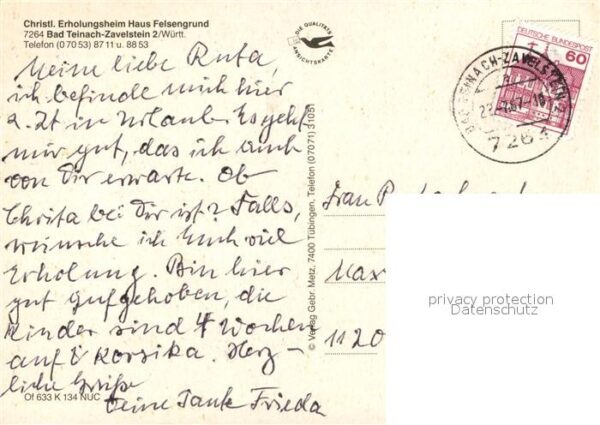 Christl. Erholungsheim Haus Felsengrund
7264 Bad Teinach-Zavelstein 2/Württ.
Telefon (0 70 53) 87 11 u. 88 53
DIE QUALITÄTS
ANSICHTSKARTE
DEUTSCHE BUNDESPOST
60
BAD TEINACH-ZAVELSTEIN
7264
Meine liebe Ruta,
ich befinde mich hier
z. Zt in Urlaub. Es geht
mir gut, das ich auch
von Dir erwarte. Ob
Christa bei Dir ist? Falls,
wünsche ich Euch viel
Erholung. Bin hier
gut aufgehoben, die
Kinder sind 4 Wochen
auf Korsika. Herz-
liche Grüße
Deine Tante Frieda
Of 633 K 134 NUC
© Verlag Gebr. Metz, 7400 Tübingen, Telefon (07071) 31051
Frau
Max
1120
privacy protection
Datenschutz